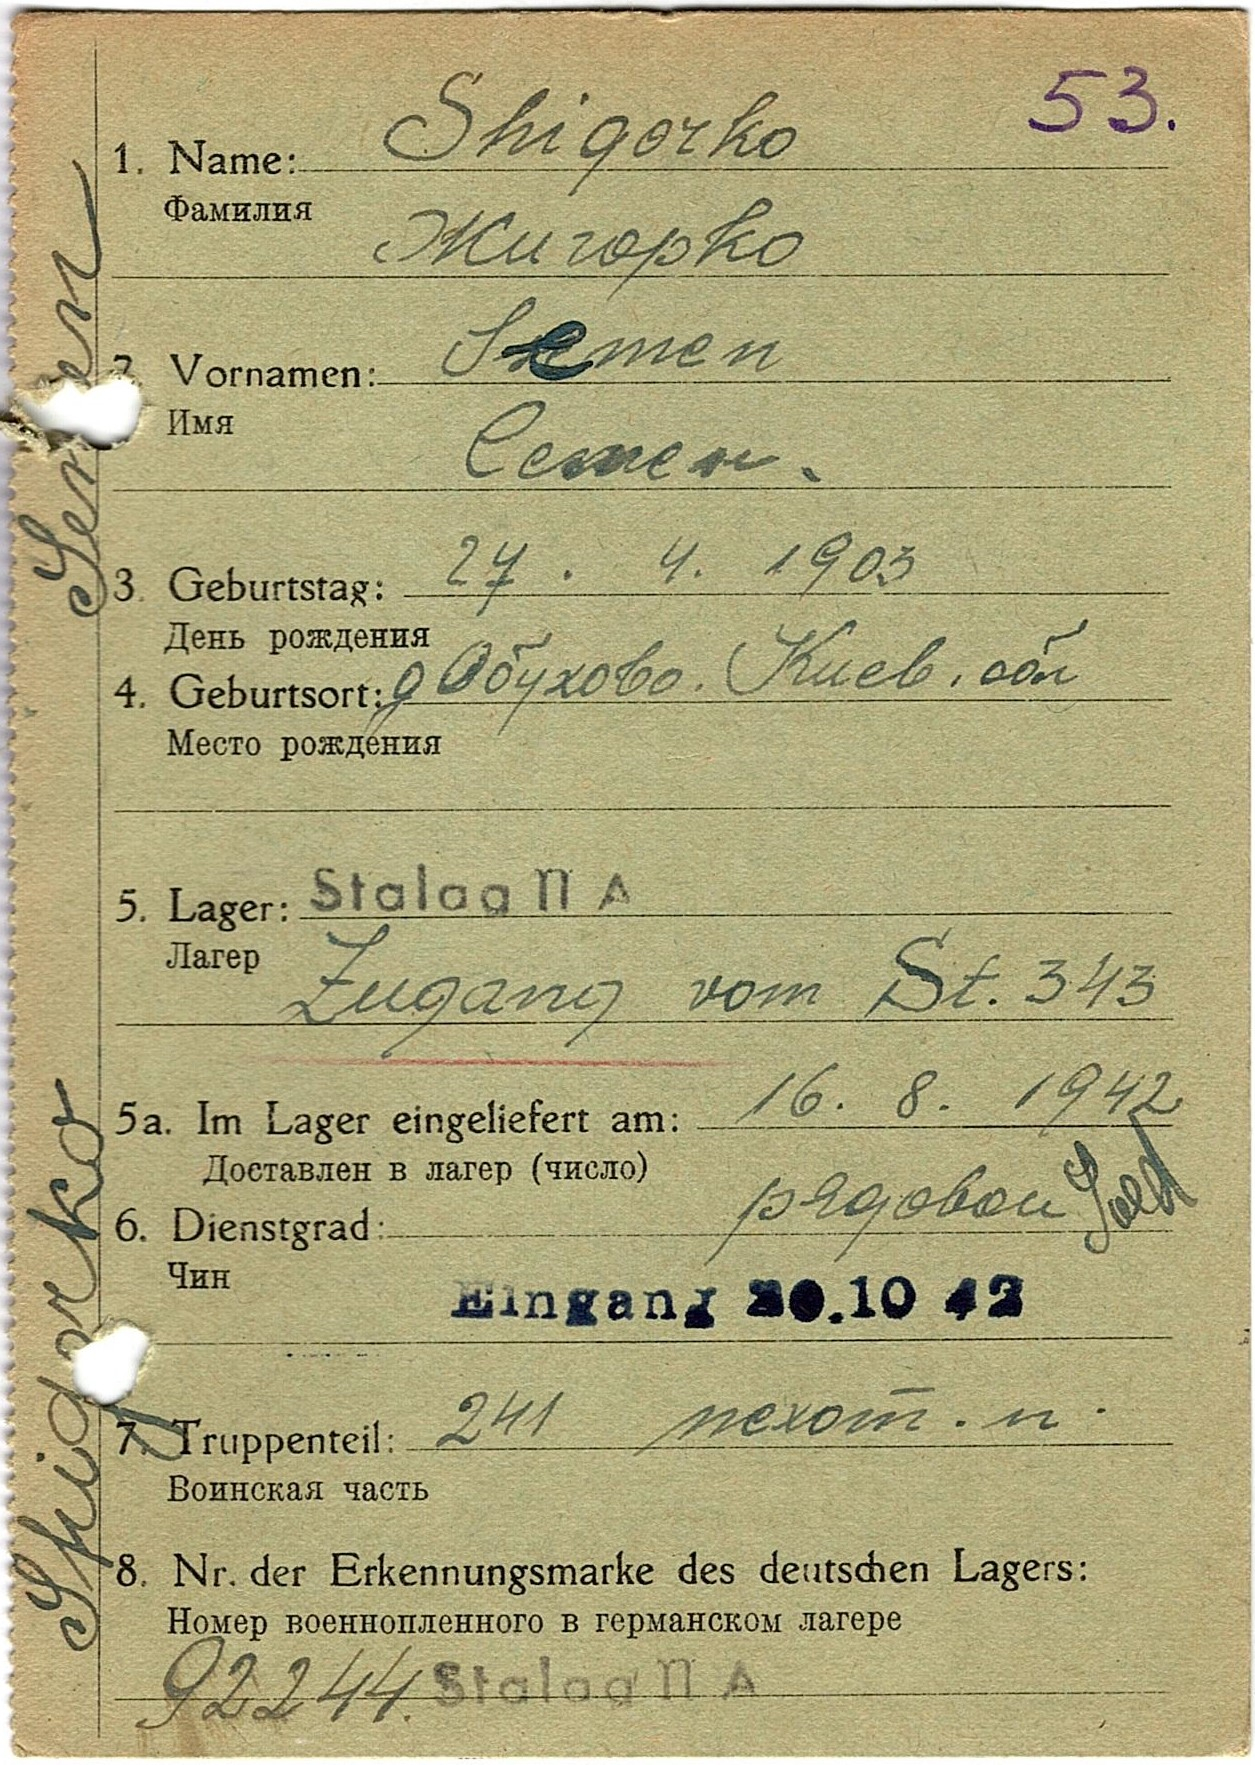 53.
1. Name: Shigorko
Фамилия
Жигорко
2. Vornamen: Semen
Имя
Семен.
3. Geburtstag: 27. 4. 1903
День рождения
4. Geburtsort: д Обухово. Киев. обл
Место рождения
5. Lager: Stalag II A
Лагер
Zugang vom St. 343
5a. Im Lager eingeliefert am: 16. 8. 1942
Доставлен в лагер (число)
6. Dienstgrad: рядовой Sold
Чин
Eingang 20.10 42
7. Truppenteil: 241 пехот. п.
Воинская часть
8. Nr. der Erkennungsmarke des deutschen Lagers:
Номер военнопленного в германском лагере
92244. Stalag II A
Shigorko Semen